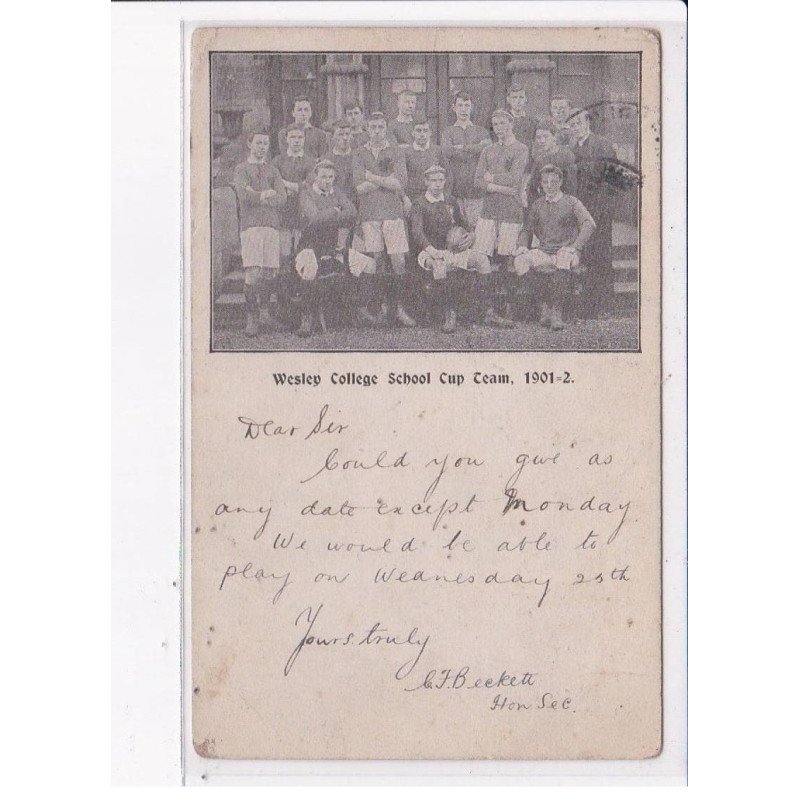 Wesley College School Cup Team, 1901-2.
Dear Sir
Could you give as
any date except Monday
We would be able to
play on Wednesday 25th
Yours truly
C.F. Beckett
Hon Sec.